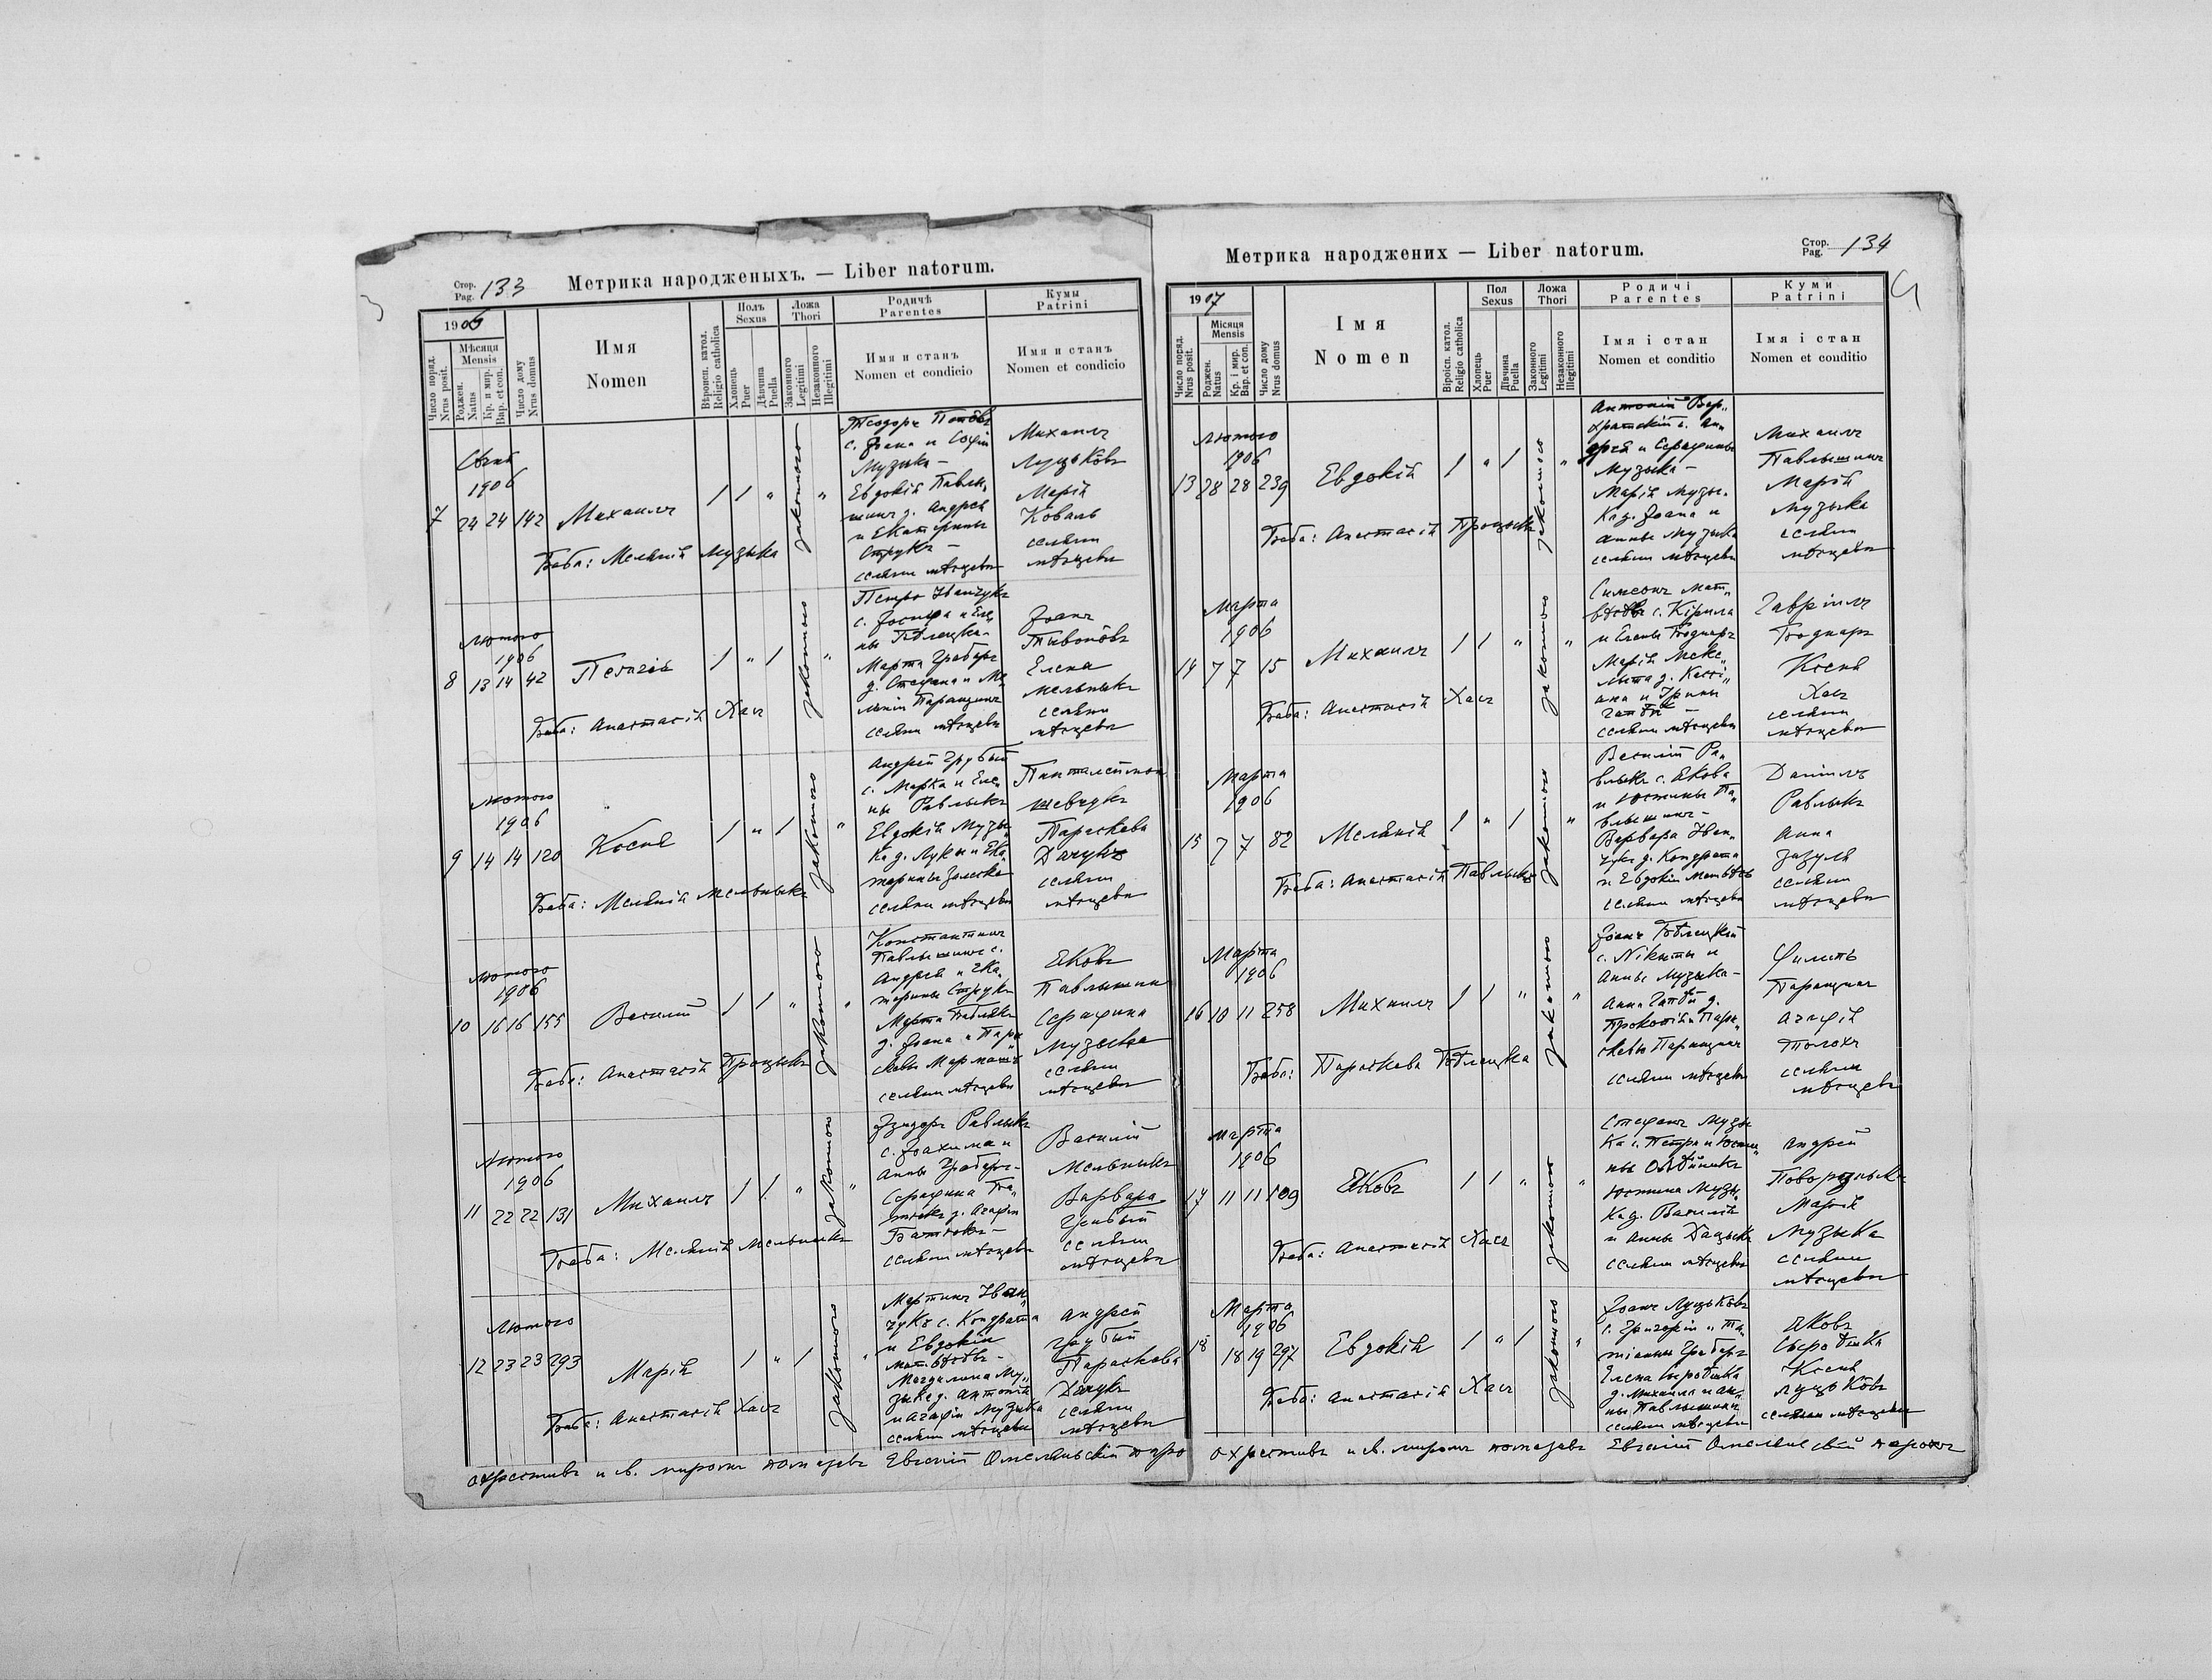 Стор.
Pag. 133
Метрика народженыхъ. — Liber natorum.
1906
Число поряд.
Nrus posit.
Мѣсяця
Mensis
Роджен.
Natus
Кр. и мир.
Bap. et con.
Число дому
Nrus domus
Имя
Nomen
Вѣроисп. катол.
Religio catholica
Полъ
Sexus
Хлопець
Puer
Дѣвчина
Puella
Ложа
Thori
Законного
Legitimi
Незаконного
Illegitimi
Родичѣ
Parentes
Имя и станъ
Nomen et condicio
Кумы
Patrini
Имя и станъ
Nomen et condicio
Сѣчня
1906
7 24 24 142 Михаилъ 1 1 " законного "
Баба: Меланія Музыка
с. Іоана и Софіи
Музыка —
Евдокія Павлы„
шинъ д. Андрея
и Екатерины
Струкъ —
селяни мѣсцеви
Михаилъ
Луцьковъ
Марія
Коваль
селяни
мѣсцеви
Лютого
1906
8 13 14 42 Пелагія 1 " 1 законного "
Баба: Анастасія Хасъ
Петро Иванчукъ
с. Іосифа и Еле
ны Бѣлецка-
Марта Грабаръ
д. Стефана и Ме„
ланіи Паращинъ
селяни мѣсцеви
Іоанъ
Тивоновъ
Елена
Мельныкъ
селяни
мѣсцеви
Лютого
1906
9 14 14 120 Косня 1 " 1 законного "
Баба: Меланія Мельныкъ
Андрей Грубый
с. Марка и Еле„
ны Равлыкъ
Евдокія Музы„
ка д. Луки и Ека„
терины Залеска
селяни мѣсцеви
Пантелеймонъ
Шевчукъ
Параскева
Дачукъ
селяни
мѣсцеви
Лютого
1906
10 16 16 155 Василій 1 1 " законного "
Баба: Анастасія Процыкъ
Константинъ
Павлышинъ с.
Андрея и Ека„
терины Струкъ
Марта Павлякъ
д. Іоана и Пара„
скевы Мармашъ
селяни мѣсцеви
Яковъ
Павлышинъ
Серафина
Музыка
селяни
мѣсцеви
Лютого
1906
11 22 22 131 Михаилъ 1 1 " законного "
Баба: Меланія Мельныкъ
Ізидоръ Равлыкъ
с. Іоахима и
Анны Грабаръ-
Серафина Ба„
тюкъ д. Агафіи
Батюкъ —
селяни мѣсцеви
Василій
Мельныкъ
Варвара
Грубый
селяни
мѣсцеви
Лютого
12 23 23 293 Марія 1 " 1 законного "
Баба: Анастасія Хасъ
Мартинъ Иван„
чукъ с. Кондрата
и Евдокіи
Матвѣєвъ-
Магдалина Му„
зыка д. Антонія
и Агафіи Музыка
селяни мѣсцеви
Андрей
Грубый
Параскева
Дачукъ
селяни
мѣсцеви
охрестивъ и св. миромъ помазавъ Евгеній Омелянскій паро
Метрика народжених — Liber natorum.
Стор.
Pag. 134
1907
Число поряд.
Nrus posit.
Місяця
Mensis
Роджен.
Natus
Кр. і мир.
Bap. et con.
Число дому
Nrus domus
Імя
Nomen
Віроісп. катол.
Religio catholica
Пол
Sexus
Хлопець
Puer
Дівчина
Puella
Ложа
Thori
Законного
Legitimi
Незаконного
Illegitimi
Родичі
Parentes
Імя і стан
Nomen et conditio
Куми
Patrini
Імя і стан
Nomen et conditio
Лютого
1906
13 28 28 239 Евдокія 1 " 1 законного "
Баба: Анастасія Процыкъ
Антоній Вер„
хратскій с. Ан„
дрея и Серафины
Музыка —
Марія Музы„
ка д. Іоана и
Анны Музыка
селяни мѣсцеви
Михаилъ
Павлышинъ
Марія
Музыка
селяни
мѣсцеви
Марта
1906
14 7 7 15 Михаилъ 1 1 " законного "
Баба: Анастасія Хасъ
Симеонъ Мат„
вѣєвъ с. Кірила
и Елены Боднаръ
д. Кассі„
ана и Ірины
селяни мѣсцеви
Гавріилъ
Боднаръ
Косня
Хасъ
селяни
мѣсцеви
Марта
1906
15 7 7 82 Меланія 1 " 1 законного "
Баба: Анастасія Павлыкъ
Василій Ра„
влыкъ с. Якова
и Юстины Па„
влышинъ -
Варвара Иван„
чукъ д. Кондрата
и Евдокіи Матвѣєвъ
селяни мѣсцеви
Даніилъ
Равлыкъ
Анна
Зазуля
селяни
мѣсцеви
Марта
1906
16 10 11 258 Михаилъ 1 1 " законного "
Баба: Параскева Бѣлецка
Іоанъ Бѣлецкій
с. Нікиты и
Анны Музыка-
Анна д.
Прокопія и Пара„
скевы Паращинъ
селяни мѣсцеви
Филипъ
Паращинъ
Агафія
Толохъ
селяни
мѣсцеви
Марта
1906
17 11 11 109 Яковъ 1 1 " законного "
Баба: Анастасія Хасъ
Стефанъ Музы
ка с. Петра и Юсти„
ны Олѣйникъ
Юстина Музы„
ка д. Василія
и Анны Дацыкъ
селяни мѣсцеви
Андрей
Поворозныкъ
Марія
Музыка
селяни
мѣсцеви
Марта
1906
18 18 19 297 Евдокія 1 " 1 законного "
Баба: Анастасія Хасъ
Іоанъ Луцьковъ
с. Григорія и Та„
тіанны Грабаръ
Елена Сыротюка
д. Михаила и Ан„
ны Павлышинъ
селяни мѣсцеви
Яковъ
Сыротюка
Косня
Луцьковъ
селяни мѣсцеви
охрестивъ и св. миромъ помазавъ Евгеній Омелянскій парохъ